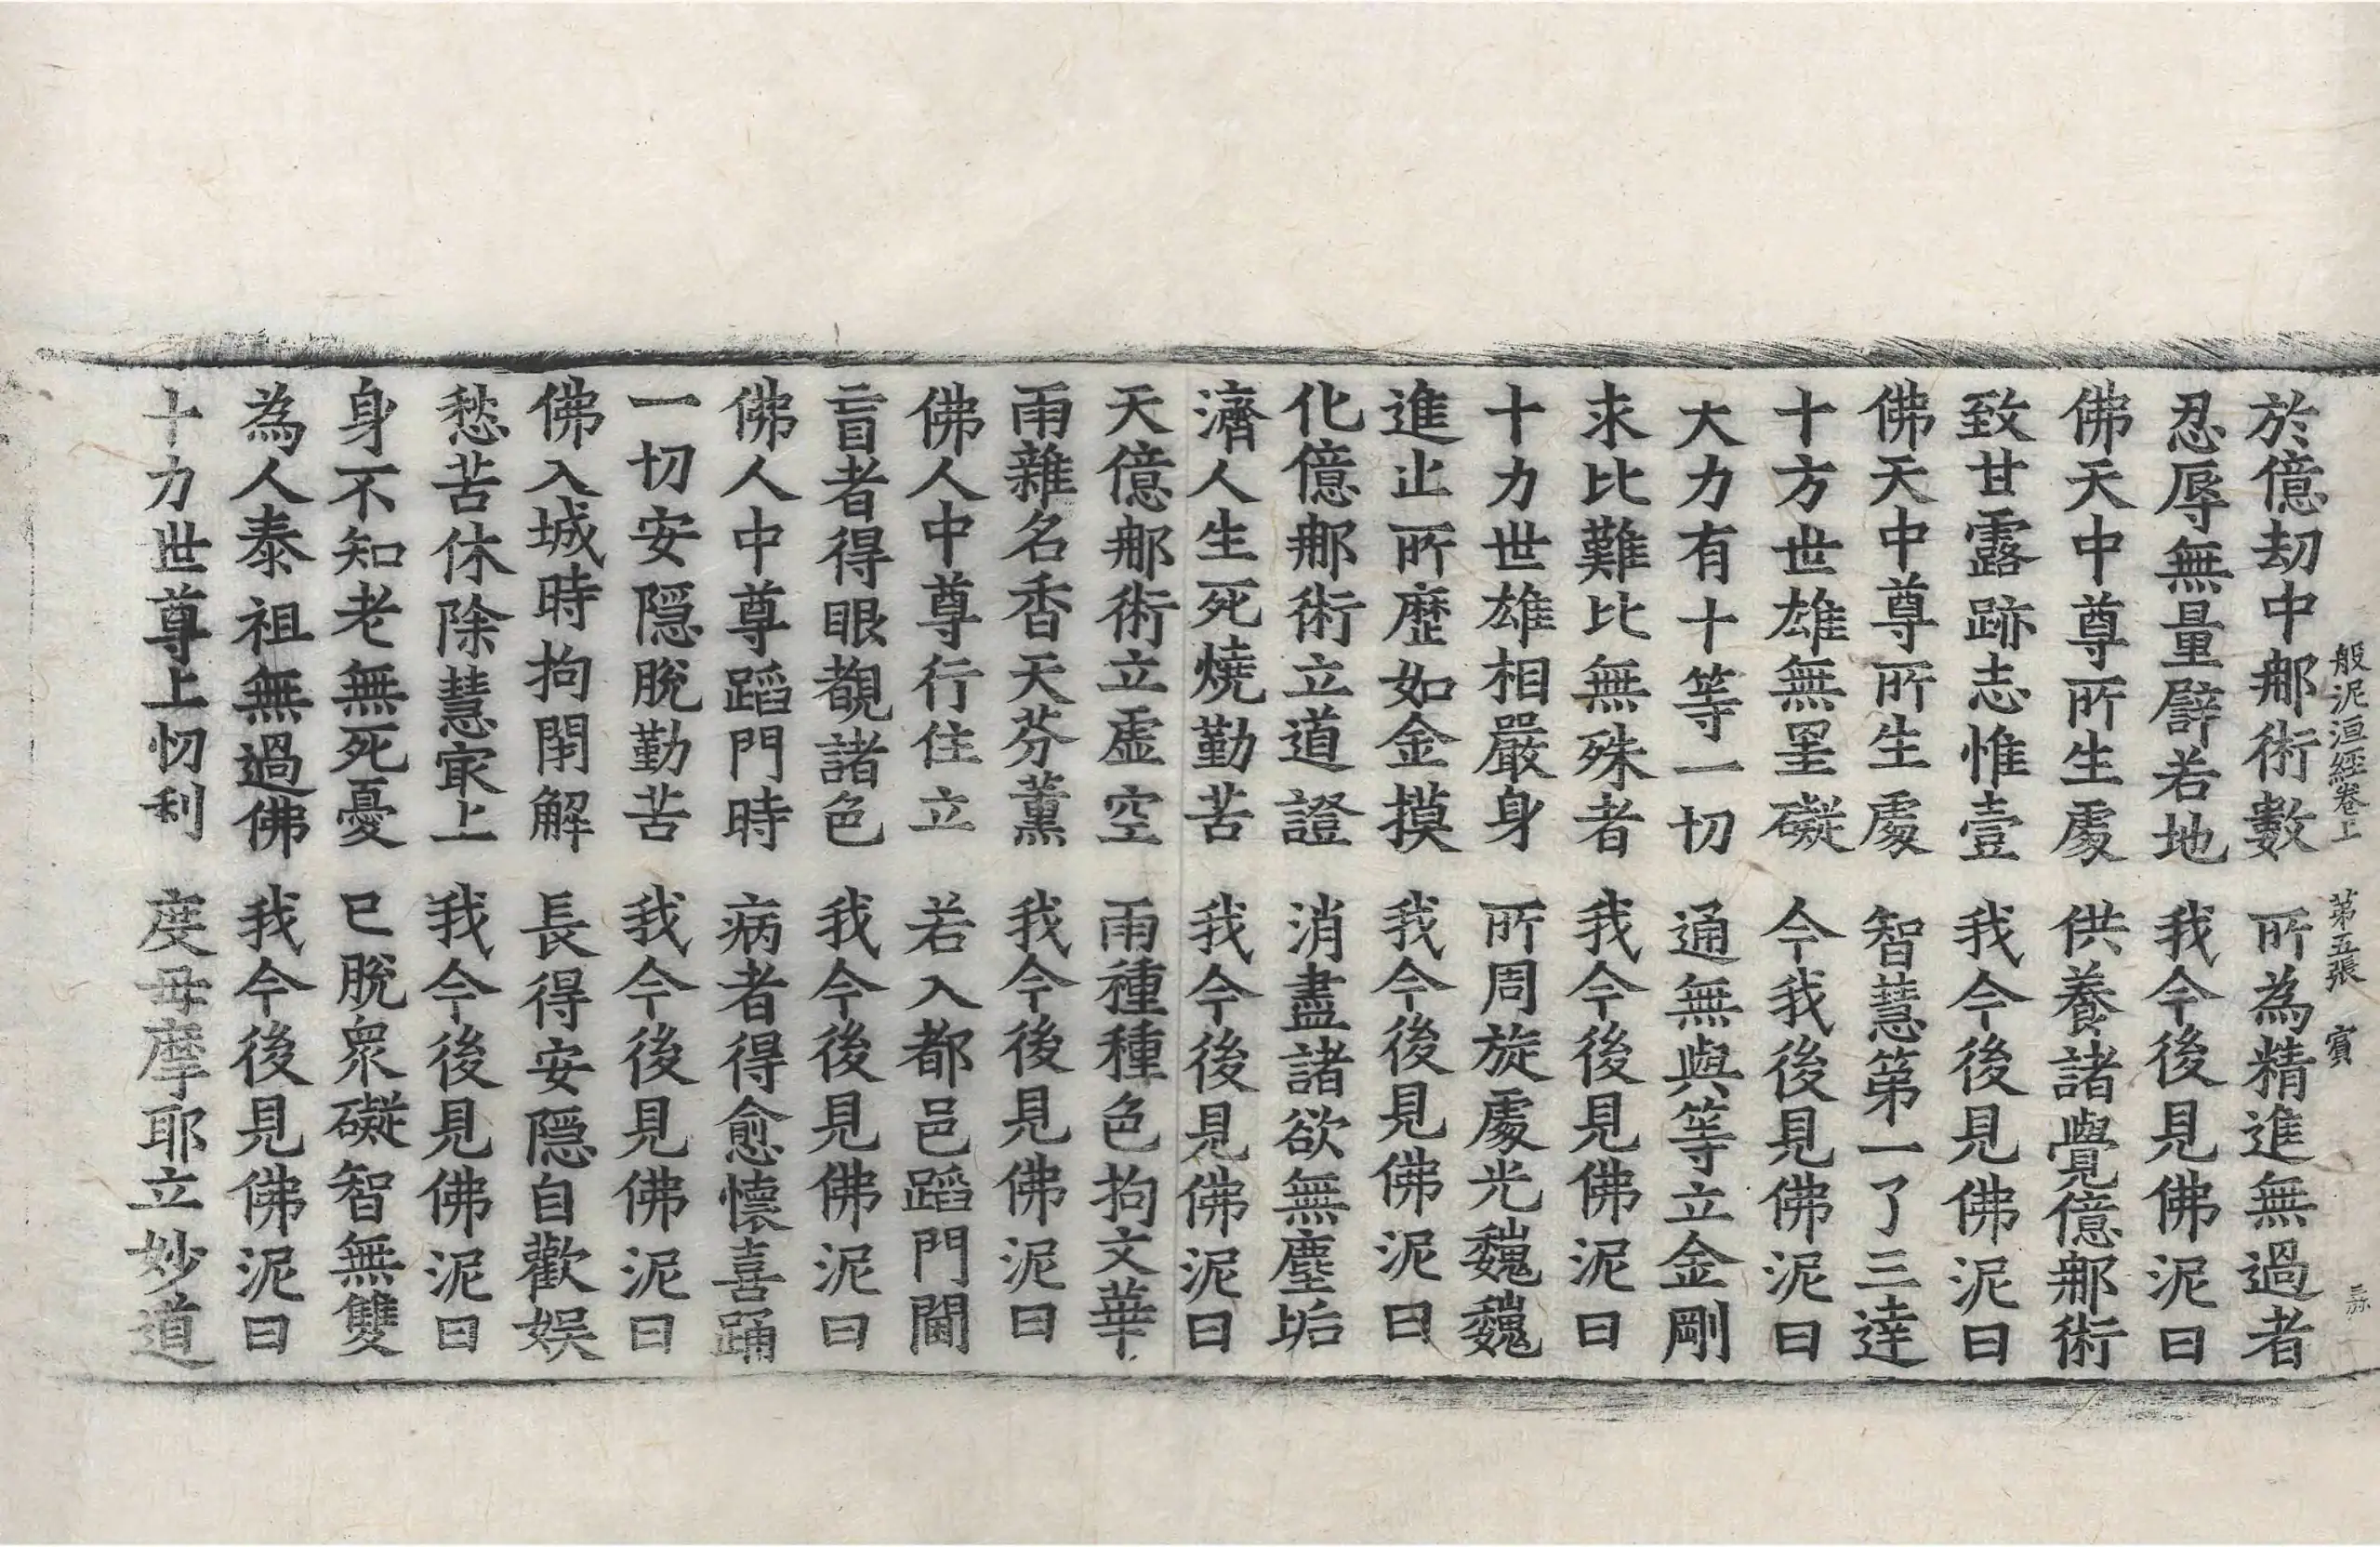 般泥洹經卷上 第五張 賓
於億劫中那術數 所為精進無過者
忍辱無量譬若地 我今後見佛泥曰
佛天中尊所生處 供養諸覺億那術
致甘露跡志惟壹 我今後見佛泥曰
佛天中尊所生處 智慧第一了三達
十方世雄無罣礙 今我後見佛泥曰
大力有十等一切 通無與等立金剛
求比難比無殊者 我今後見佛泥曰
十力世雄相嚴身 所周旋處光巍巍
進止所歷如金摸 我今後見佛泥曰
化億那術立道證 消盡諸欲無塵垢
濟人生死燒勤苦 我今後見佛泥曰
天億那術立虛空 雨種種色拘文華
雨雜名香天芬薰 我今後見佛泥曰
佛人中尊行住立 若入都邑蹈門閫
盲者得眼覩諸色 我今後見佛泥曰
佛人中尊蹈門時 病者得愈懷喜踊
一切安隱脫勤苦 我今後見佛泥曰
佛入城時拘閉解 長得安隱自歡娛
愁苦休除慧冣上 我今後見佛泥曰
身不知老無死憂 已脫衆礙智無雙
為人泰祖無過佛 我今後見佛泥曰
十力世尊上忉利 度母摩耶立妙道